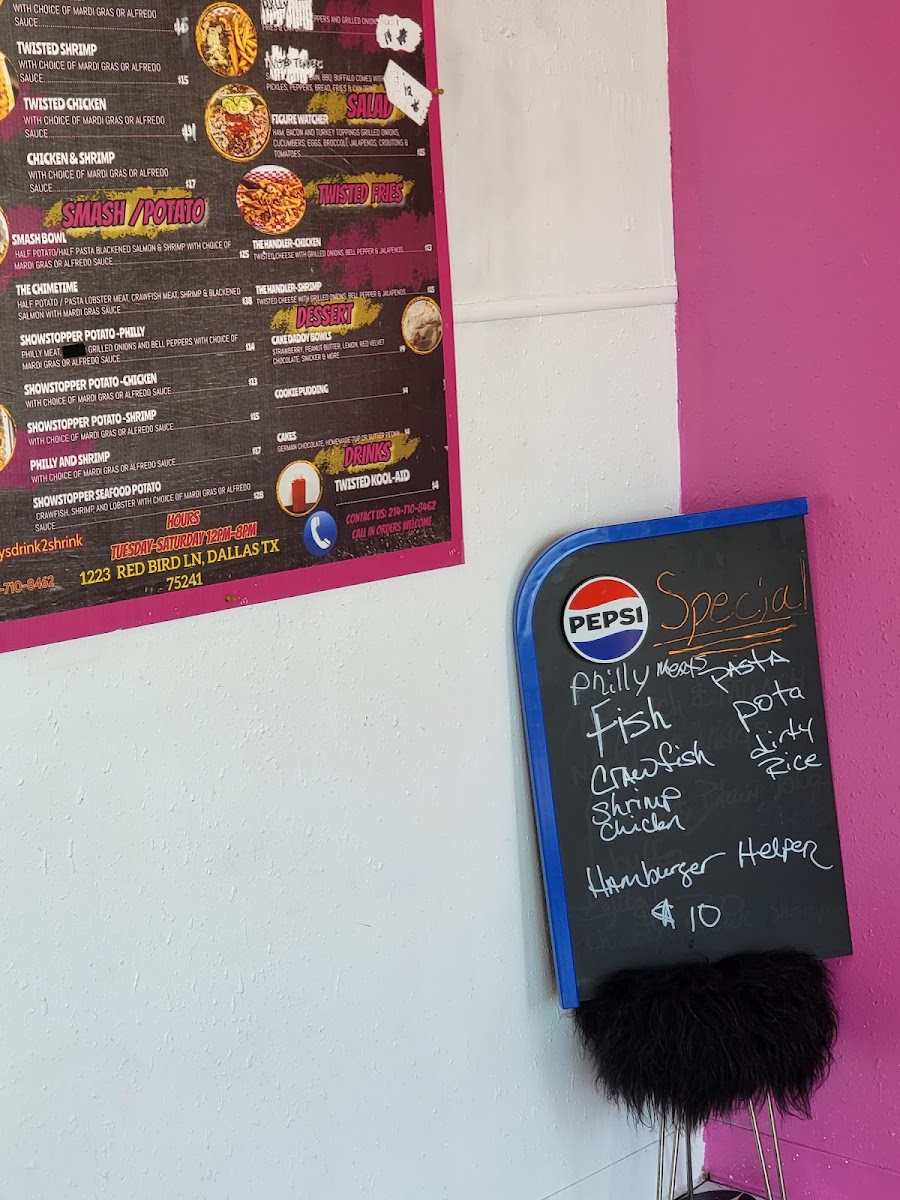 WITH CHOICE OF MARDI GRAS OR ALFREDO
SAUCE
TWISTED SHRIMP
WITH CHOICE OF MARDI GRAS OR ALFREDO
SAUCE $15
TWISTED CHICKEN
WITH CHOICE OF MARDI GRAS OR ALFREDO
SAUCE
CHICKEN & SHRIMP
WITH CHOICE OF MARDI GRAS OR ALFREDO
SAUCE $17
SMASH /POTATO
SMASH BOWL
HALF POTATO/HALF PASTA BLACKENED SALMON & SHRIMP WITH CHOICE OF
MARDI GRAS OR ALFREDO SAUCE $25
THE CHIMETIME
HALF POTATO / PASTA LOBSTER MEAT, CRAWFISH MEAT, SHRIMP & BLACKENED
SALMON WITH MARDI GRAS SAUCE $38
SHOWSTOPPER POTATO -PHILLY
PHILLY MEAT, GRILLED ONIONS AND BELL PEPPERS WITH CHOICE OF
MARDI GRAS OR ALFREDO SAUCE $14
SHOWSTOPPER POTATO -CHICKEN
WITH CHOICE OF MARDI GRAS OR ALFREDO SAUCE $13
SHOWSTOPPER POTATO -SHRIMP
WITH CHOICE OF MARDI GRAS OR ALFREDO SAUCE $15
PHILLY AND SHRIMP
WITH CHOICE OF MARDI GRAS OR ALFREDO SAUCE $17
SHOWSTOPPER SEAFOOD POTATO
CRAWFISH, SHRIMP, AND LOBSTER WITH CHOICE OF MARDI GRAS OR ALFREDO
SAUCE $28
ysdrink2shrink
-710-8462
HOURS
TUESDAY-SATURDAY 12PM-8PM
1223 RED BIRD LN, DALLAS TX
75241
PEPPERS AND GRILLED ONIONS
BBQ, BUFFALO COMES WITH
PICKLES, PEPPERS, BREAD, FRIES & CAN DRINK
SALAD
FIGURE WATCHER
HAM, BACON AND TURKEY TOPPINGS GRILLED ONIONS,
CUCUMBERS, EGGS, BROCCOLI, JALAPENOS, CROUTONS &
TOMATOES $15
TWISTED FRIES
THE HANDLER-CHICKEN
TWISTED CHEESE WITH GRILLED ONIONS, BELL PEPPER & JALAPENOS $13
THE HANDLER-SHRIMP
TWISTED CHEESE WITH GRILLED ONIONS, BELL PEPPER & JALAPENOS $15
DESSERT
CAKE DADDY BOWLS
STRAWBERRY, PEANUT BUTTER, LEMON, RED VELVET
CHOCOLATE, SNICKER & MORE $9
COOKIE PUDDING
CAKES
GERMAN CHOCOLATE, HOMEMADE 7UP OR BUTTER PECAN
DRINKS
TWISTED KOOL-AID
$4
CONTACT US: 214-710-8462
CALL IN ORDERS WELCOME.
PEPSI
Special
Philly Meats PASTA
Fish pota
Crawfish dirty
Rice
Shrimp
Chicken
Hamburger Helper
$10